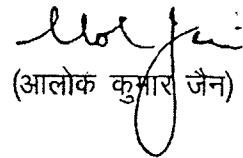 (आलोक कुमार जैन)